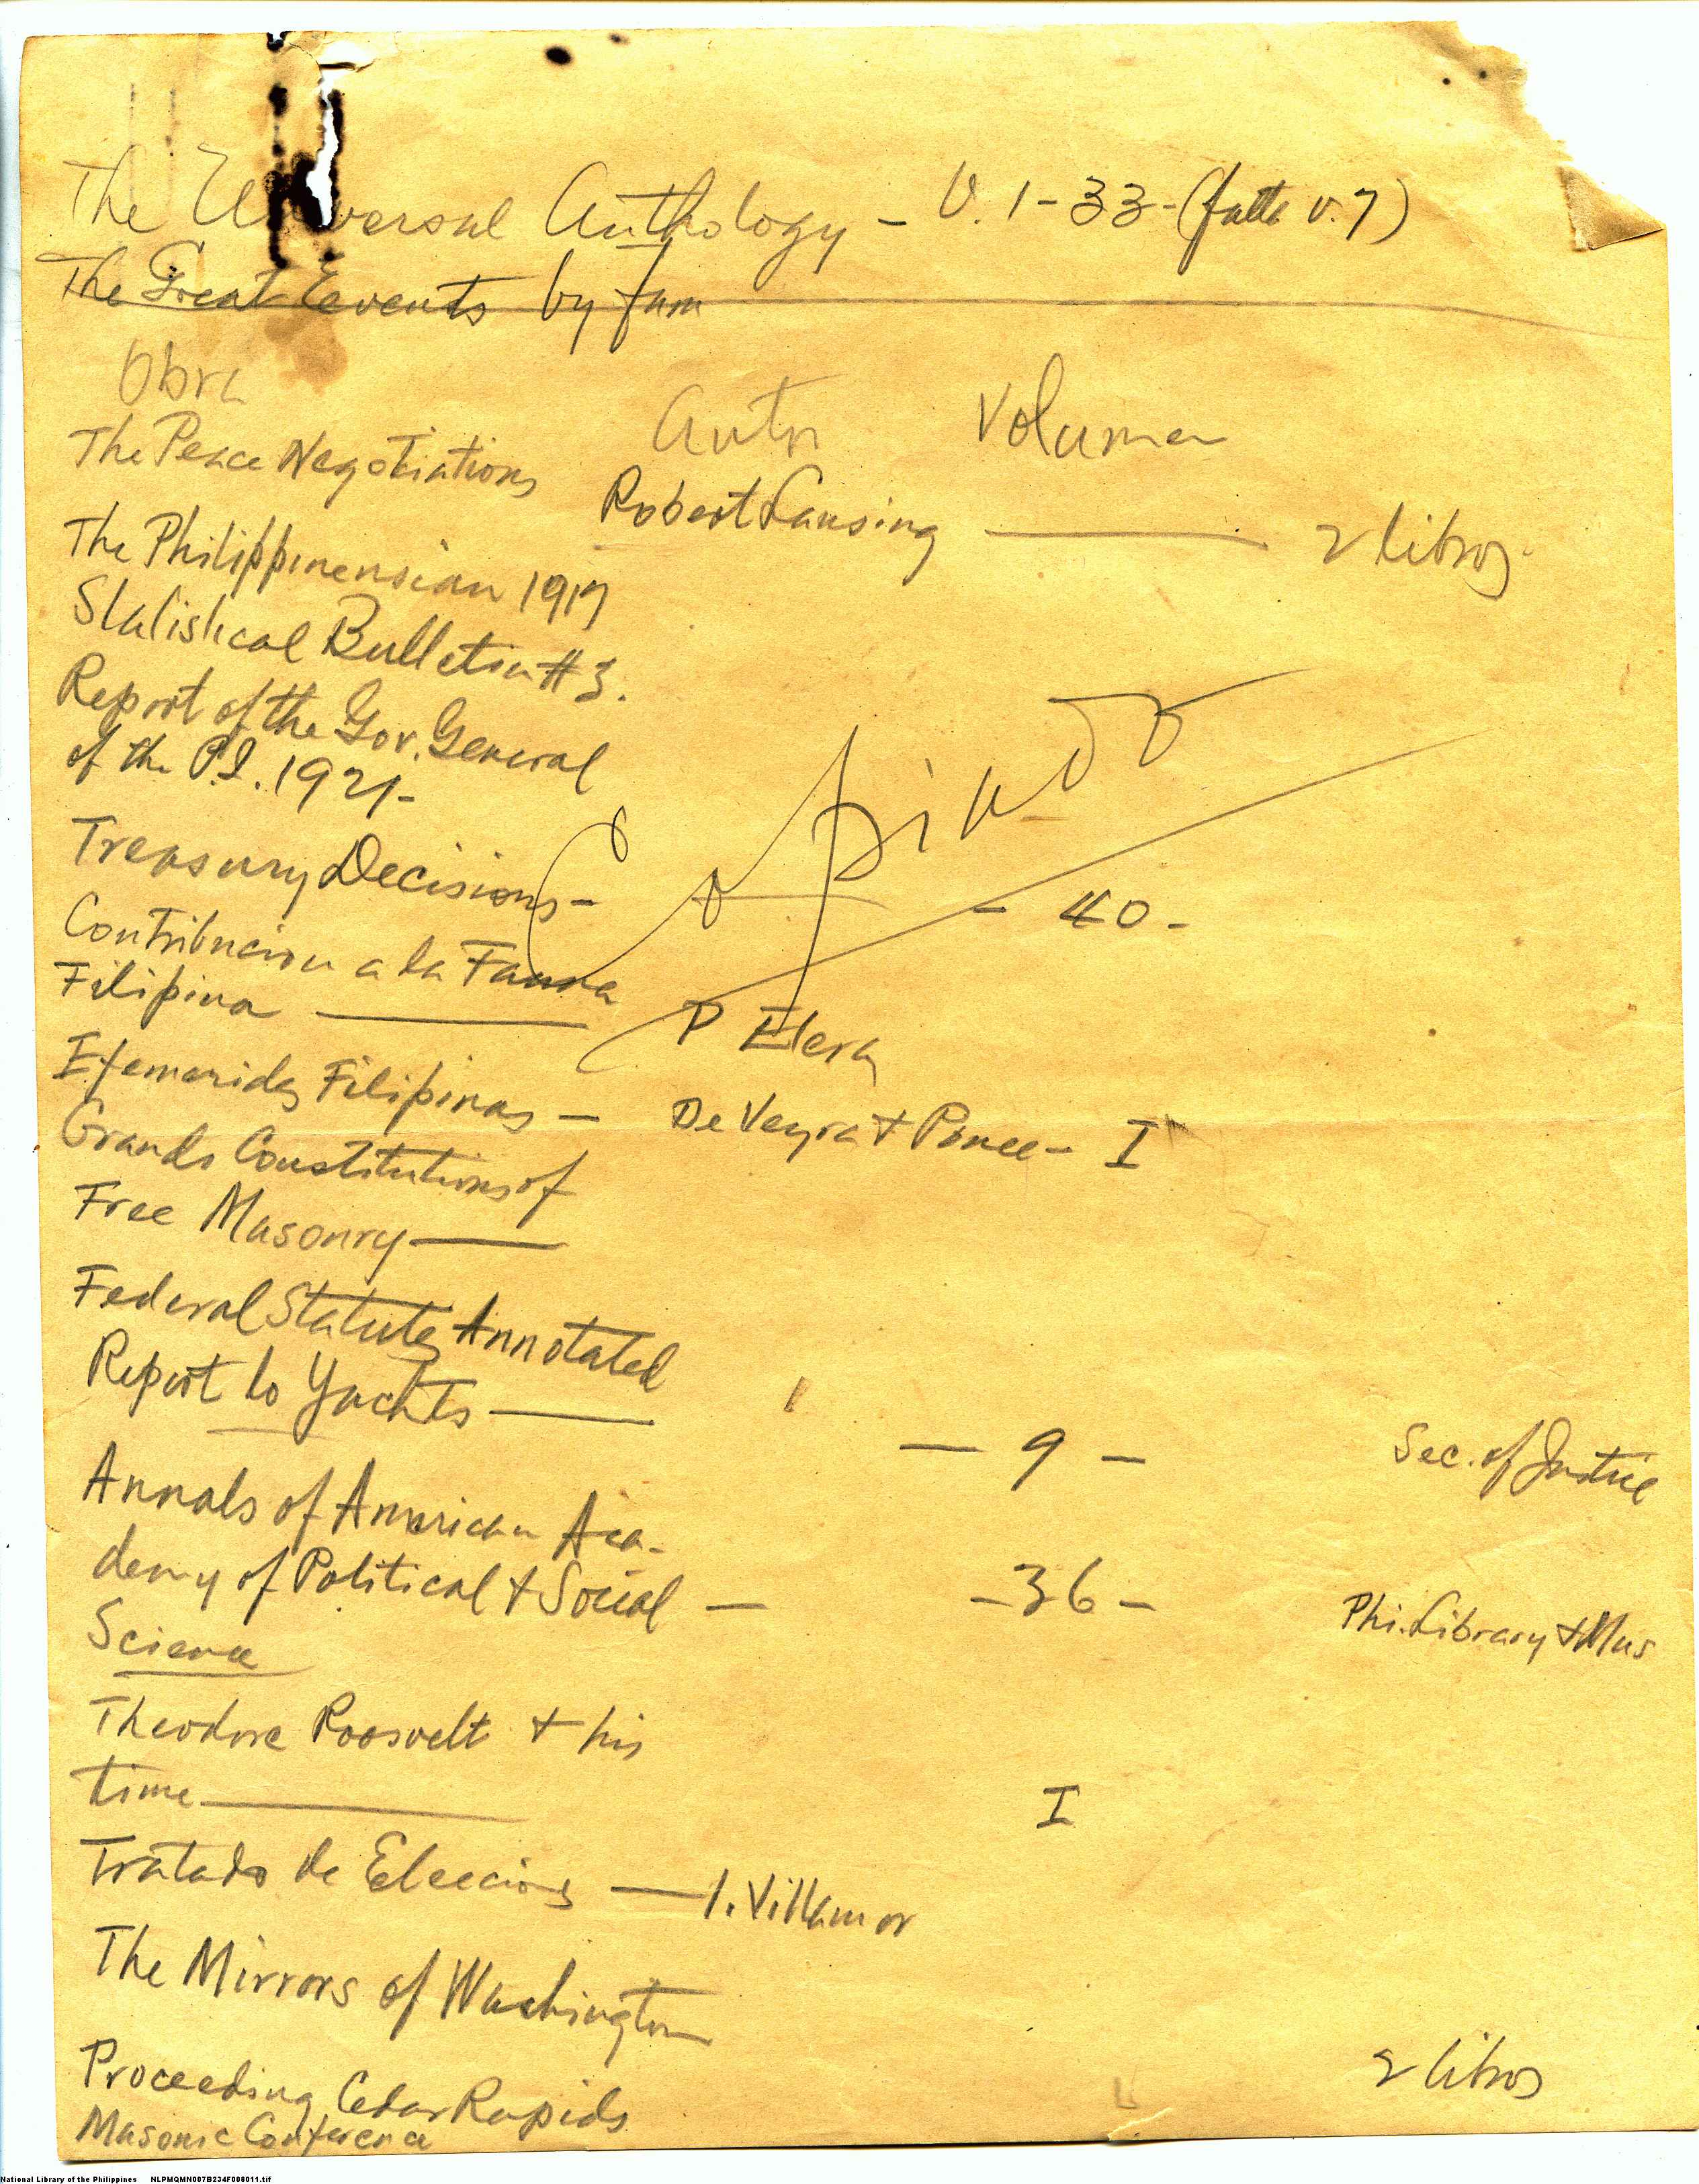 The Universal Anthology - V. 1-33- (falta v. 7)
The Great Events by fam
Obra Autor Volumen
The Peace Negotiations Robert Lansing — 2 libros
The Philippinensian 1917
Statistical Bulletin #3.
Report of the Gov. General
of the P.I. 1921-
Copiado
Treasury Decisions- - 40 -
Contribucion a la Fauna
Filipina — P Elera
Efemerides Filipinas — De Veyra & Ponce - I
Grands Constitutions of
Free Masonry —
Federal Statutes Annotated
Report to Yachts — — 9 — Sec. of Justice
Annals of American Aca-
demy of Political & Social — -36- Phi. Library & Mus
Science
Theodore Roosvelt & his
time — I
Tratado de Eleccions — I. Villamor
The Mirrors of Washington
Proceeding Cedar Rapids 2 libros
Masonic Conference
National Library of the Philippines NLPMQMN007B234F008011.tif